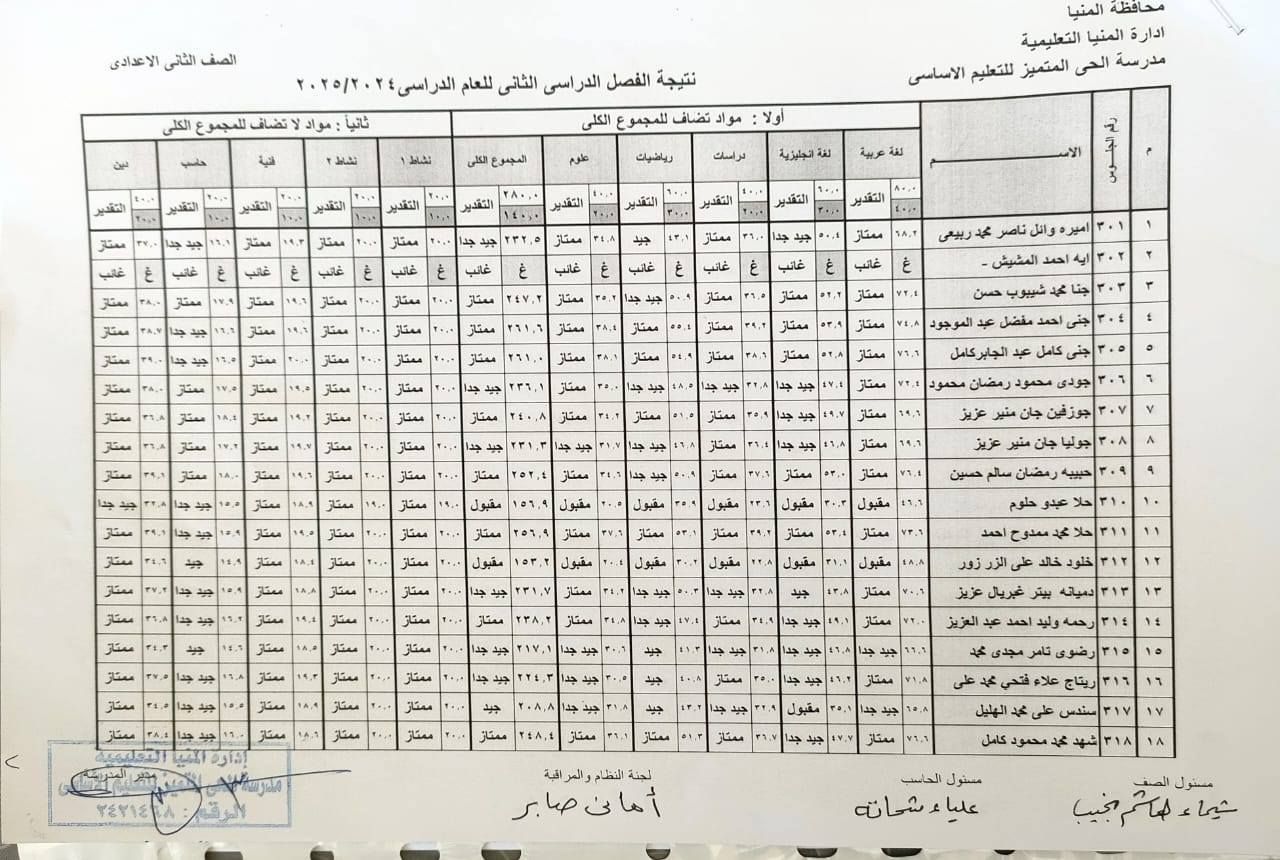 محافظة المنيا
ادارة المنيا التعليمية
مدرسة الحى المتميز للتعليم الاساسى
الصف الثانى الاعدادى
نتيجة الفصل الدراسى الثانى للعام الدراسى ٢٠٢٥/٢٠٢٤
م رقم الجلوس الاســــم أولا : مواد تضاف للمجموع الكلى ثانياً : مواد لا تضاف للمجموع الكلى
لغة عربية لغة انجليزية دراسات رياضيات علوم المجموع الكلى نشاط ١ نشاط ٢ فنية حاسب دين
٨٠,٠ التقدير ٦٠,٠ التقدير ٤٠,٠ التقدير ٦٠,٠ التقدير ٤٠,٠ التقدير ٢٨٠,٠ التقدير ٢٠,٠ التقدير ٢٠,٠ التقدير ٢٠,٠ التقدير ٢٠,٠ التقدير ٤٠,٠ التقدير
٤٠,٠ ٣٠,٠ ٢٠,٠ ٣٠,٠ ٢٠,٠ ١٤٠,٠ ١٠,٠ ١٠,٠ ١٠,٠ ١٠,٠ ٢٠,٠
١ ٣٠١ اميره وائل ناصر محمد ربيعى ٦٨,٢ ممتاز ٥٠,٤ جيد جدا ٣٦,٠ ممتاز ٤٣,١ جيد ٣٤,٨ ممتاز ٢٣٢,٥ جيد جدا ٢٠,٠ ممتاز ٢٠,٠ ممتاز ١٩,٣ ممتاز ١٦,١ جيد جدا ٣٧,٠ ممتاز
٢ ٣٠٢ ايه احمد المشيش - غ غائب غ غائب غ غائب غ غائب غ غائب غ غائب غ غائب غ غائب غ غائب غ غائب غ غائب
٣ ٣٠٣ جنا محمد شيبوب حسن ٧٢,٤ ممتاز ٥٢,٢ ممتاز ٣٦,٥ ممتاز ٥٠,٩ جيد جدا ٣٥,٢ ممتاز ٢٤٧,٢ ممتاز ٢٠,٠ ممتاز ٢٠,٠ ممتاز ١٩,٦ ممتاز ١٧,٩ ممتاز ٣٨,٠ ممتاز
٤ ٣٠٤ جنى احمد مفضل عبد الموجود ٧٤,٨ ممتاز ٥٣,٩ ممتاز ٣٩,٢ ممتاز ٥٥,٤ ممتاز ٣٨,٤ ممتاز ٢٦١,٦ ممتاز ٢٠,٠ ممتاز ٢٠,٠ ممتاز ١٩,٦ ممتاز ١٦,٦ جيد جدا ٣٨,٧ ممتاز
٥ ٣٠٥ جنى كامل عبد الجابركامل ٧٦,٦ ممتاز ٥٢,٨ ممتاز ٣٨,٦ ممتاز ٥٤,٩ ممتاز ٣٨,١ ممتاز ٢٦١,٠ ممتاز ٢٠,٠ ممتاز ٢٠,٠ ممتاز ٢٠,٠ ممتاز ١٦,٥ جيد جدا ٣٩,٠ ممتاز
٦ ٣٠٦ جودى محمود رمضان محمود ٧٢,٤ ممتاز ٤٧,٤ جيد جدا ٣٢,٨ جيد جدا ٤٨,٥ جيد جدا ٣٥,٠ ممتاز ٢٣٦,١ جيد جدا ٢٠,٠ ممتاز ٢٠,٠ ممتاز ١٩,٥ ممتاز ١٧,٥ ممتاز ٣٨,٠ ممتاز
٧ ٣٠٧ جوزفين جان منير عزيز ٦٩,٦ ممتاز ٤٩,٧ جيد جدا ٣٥,٩ ممتاز ٥١,٥ ممتاز ٣٤,٢ ممتاز ٢٤٠,٨ ممتاز ٢٠,٠ ممتاز ٢٠,٠ ممتاز ١٩,٢ ممتاز ١٨,٤ ممتاز ٣٦,٨ ممتاز
٨ ٣٠٨ جوليا جان منير عزيز ٦٩,٦ ممتاز ٤٦,٨ جيد جدا ٣٦,٤ ممتاز ٤٦,٨ جيد جدا ٣١,٧ جيد جدا ٢٣١,٣ جيد جدا ٢٠,٠ ممتاز ٢٠,٠ ممتاز ١٩,٧ ممتاز ١٧,٢ ممتاز ٣٦,٨ ممتاز
٩ ٣٠٩ حبيبه رمضان سالم حسين ٧٦,٤ ممتاز ٥٣,٠ ممتاز ٣٧,٦ ممتاز ٥٠,٩ جيد جدا ٣٤,٦ ممتاز ٢٥٢,٤ ممتاز ٢٠,٠ ممتاز ٢٠,٠ ممتاز ١٩,٦ ممتاز ١٨,٠ ممتاز ٣٩,١ ممتاز
١٠ ٣١٠ حلا عبدو حلوم ٤٦,٦ مقبول ٣٠,٣ مقبول ٢٣,٦ مقبول ٣٥,٩ مقبول ٢٠,٥ مقبول ١٥٦,٩ مقبول ١٩,٠ ممتاز ١٩,٠ ممتاز ١٨,٩ ممتاز ١٥,٥ جيد جدا ٣٢,٨ جيد جدا
١١ ٣١١ حلا محمد ممدوح احمد ٧٣,٦ ممتاز ٥٣,٤ ممتاز ٣٩,٢ ممتاز ٥٣,١ ممتاز ٣٧,٦ ممتاز ٢٥٦,٩ ممتاز ٢٠,٠ ممتاز ٢٠,٠ ممتاز ١٩,٥ ممتاز ١٥,٩ جيد جدا ٣٩,١ ممتاز
١٢ ٣١٢ خلود خالد على الزر زور ٤٨,٨ مقبول ٣١,١ مقبول ٢٢,٨ مقبول ٣٠,٢ مقبول ٢٠,٤ مقبول ١٥٣,٢ مقبول ٢٠,٠ ممتاز ٢٠,٠ ممتاز ١٨,٤ ممتاز ١٤,٩ جيد ٣٤,٦ ممتاز
١٣ ٣١٣ دميانه بيتر غبريال عزيز ٧٠,٦ ممتاز ٤٣,٨ جيد ٣٢,٨ جيد جدا ٥٠,٣ جيد جدا ٣٤,٢ ممتاز ٢٣١,٧ جيد جدا ٢٠,٠ ممتاز ٢٠,٠ ممتاز ١٨,٨ ممتاز ١٥,٩ جيد جدا ٣٧,٢ ممتاز
١٤ ٣١٤ رحمه وليد احمد عبد العزيز ٧٢,٠ ممتاز ٤٩,١ جيد جدا ٣٤,٩ ممتاز ٤٧,٤ جيد جدا ٣٤,٨ ممتاز ٢٣٨,٢ ممتاز ٢٠,٠ ممتاز ٢٠,٠ ممتاز ١٩,٤ ممتاز ١٦,٢ جيد جدا ٣٦,٨ ممتاز
١٥ ٣١٥ رضوى تامر مجدى محمد ٦٦,٦ جيد جدا ٤٦,٨ جيد جدا ٣١,٨ جيد جدا ٤١,٣ جيد ٣٠,٦ جيد جدا ٢١٧,١ جيد جدا ٢٠,٠ ممتاز ٢٠,٠ ممتاز ١٨,٥ ممتاز ١٤,٦ جيد ٣٤,٣ ممتاز
١٦ ٣١٦ ريتاج علاء فتحي محمد على ٧١,٨ ممتاز ٤٦,٢ جيد جدا ٣٥,٠ ممتاز ٤٠,٨ جيد ٣٠,٥ جيد جدا ٢٢٤,٣ جيد جدا ٢٠,٠ ممتاز ٢٠,٠ ممتاز ١٩,٣ ممتاز ١٦,٨ جيد جدا ٣٧,٥ ممتاز
١٧ ٣١٧ سندس على محمد الهليل ٦٥,٨ جيد جدا ٣٥,١ مقبول ٣٢,٩ جيد جدا ٤٣,٢ جيد ٣١,٨ جيد جدا ٢٠٨,٨ جيد ٢٠,٠ ممتاز ٢٠,٠ ممتاز ١٨,٩ ممتاز ١٥,٥ جيد جدا ٣٤,٥ ممتاز
١٨ ٣١٨ شهد محمد محمود كامل ٧٦,٦ ممتاز ٤٧,٧ جيد جدا ٣٦,٧ ممتاز ٥١,٣ ممتاز ٣٦,١ ممتاز ٢٤٨,٤ ممتاز ٢٠,٠ ممتاز ٢٠,٠ ممتاز ١٨,٦ ممتاز ١٦,٠ جيد جدا ٣٨,٤ ممتاز
مسئول الصف مسئول الحاسب لجنة النظام والمراقبة مدير المدرسة
شيماء هاشم علياء شحاته أمانى صابر
إدارة المنيا التعليمية
مدرسة الحى المتميز للتعليم الأساسى
الرقم : ٢٤٢١٤٦٨